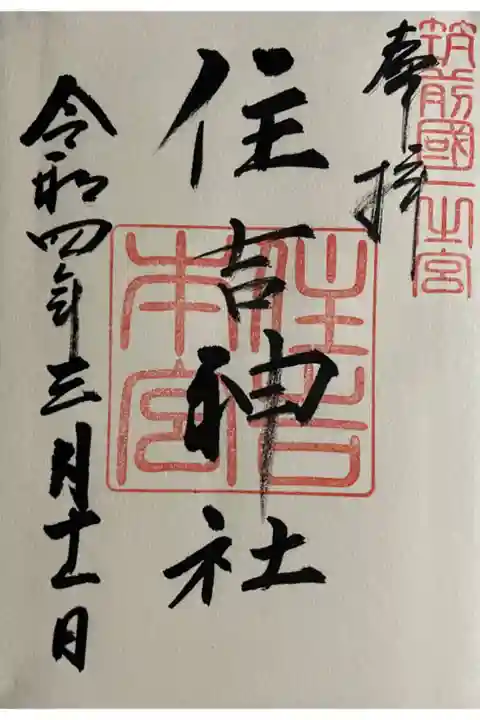 筑前國一之宮
奉拝
住吉神社
住吉本宮
令和四年三月十一日